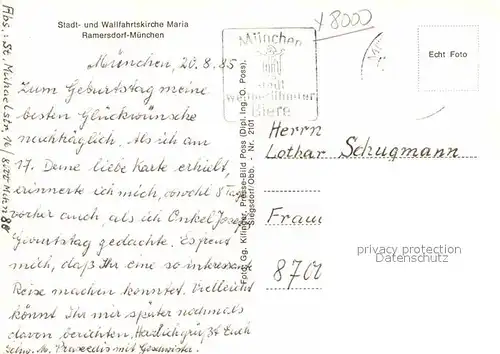 Stadt- und Wallfahrtskirche Maria
Ramersdorf-München
München, 20.8.85
Zum Geburtstag meine
besten Glückwünsche
nachträglich. Als ich am
17. Deine liebe Karte erhielt,
erinnerte ich mich, obwohl 8 Tage
vorher auch, als ich Onkel Josefs
Geburtstag gedachte. Es freut
mich, daß Ihr eine so interessante
Reise machen konntet. Vielleicht
könnt Ihr mir später nochmals
davon berichten. Herzlich grüßt Euch
mit Geschwister.
Abs.: St. Michaelstr. 16 / 8000 Mchn 80
Foto: Gg. Klinger, Presse-Bild Poss (Dipl. Ing. O. Poss),
Siegsdorf/Obb. · Nr. 2101
x 8000
München
Stadt
weltberühmter
Biere
Echt Foto
Herrn
Lothar Schugmann
Frau
8700
privacy protection